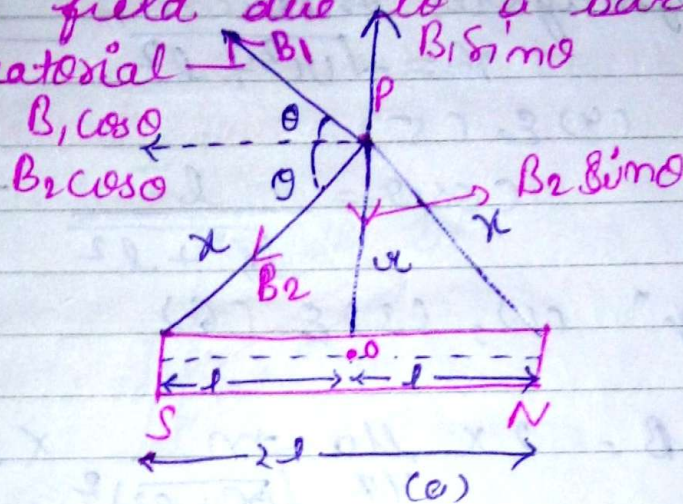 field due to a bar
atorial
B₁ B₁Sinθ
P
B₁cosθ θ
B₂cosθ θ B₂Sinθ
x r x
B₂
O
l l
S N
2l
(a)